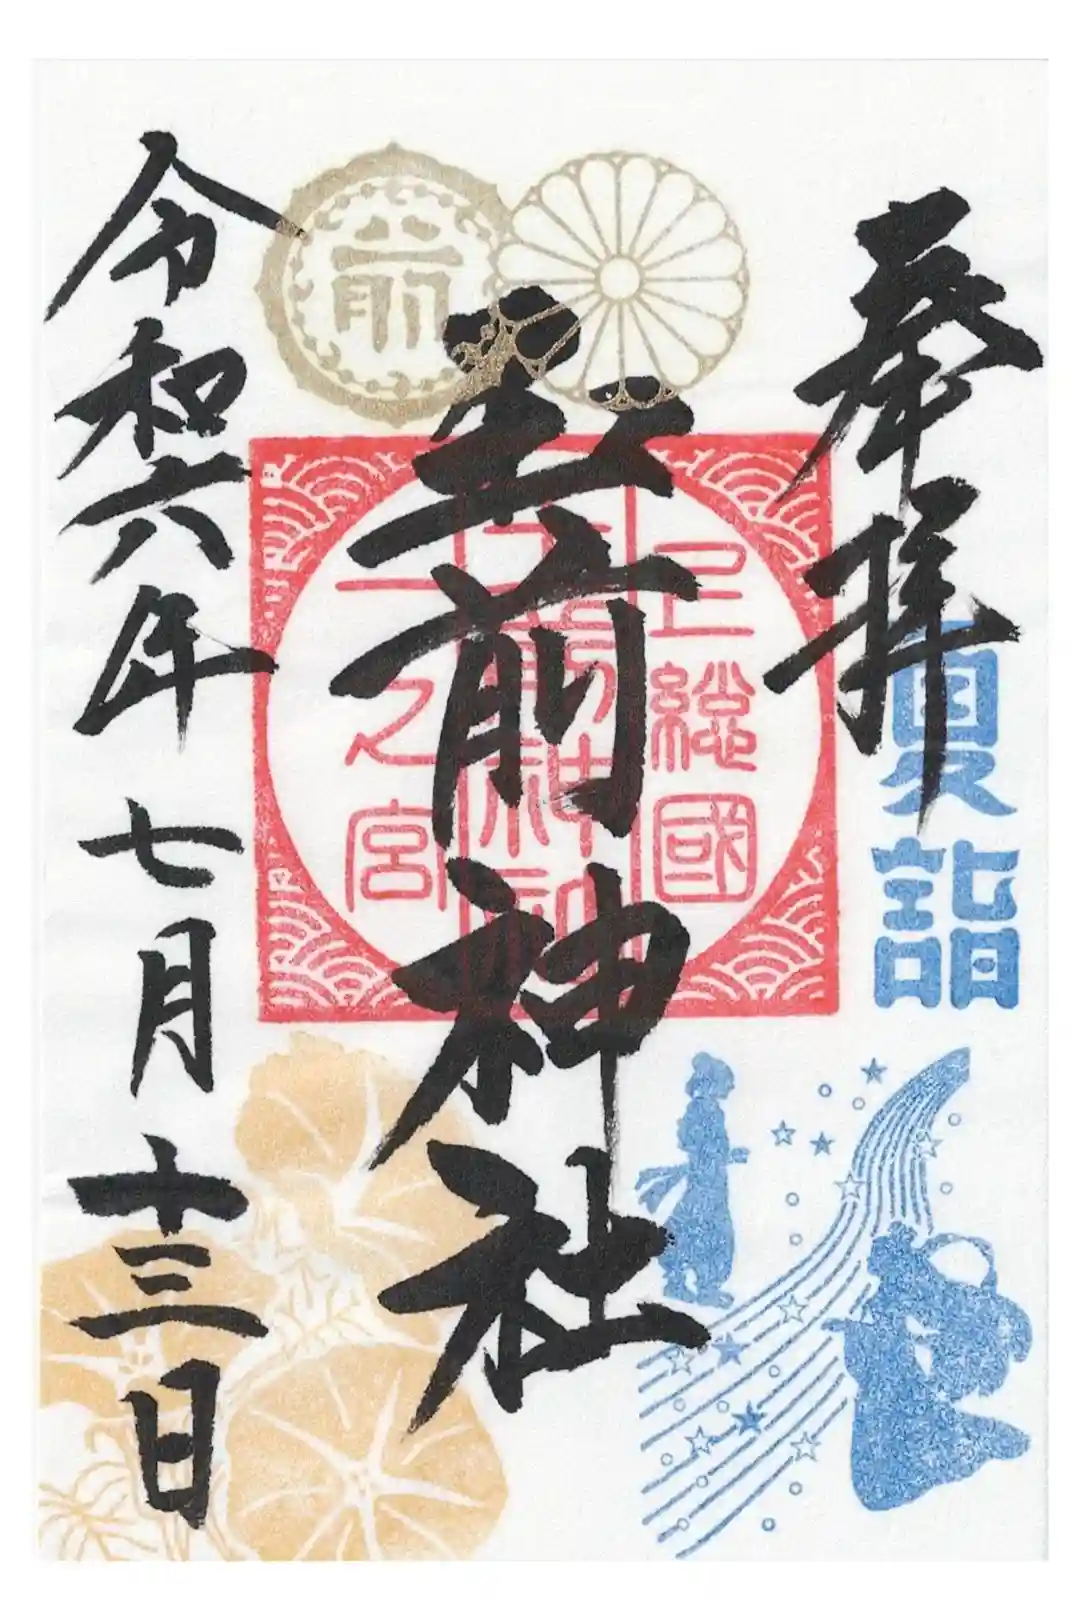 奉拝
夏詣
前
上総國
玉前神社
一之宮
玉前神社
令和六年七月十三日